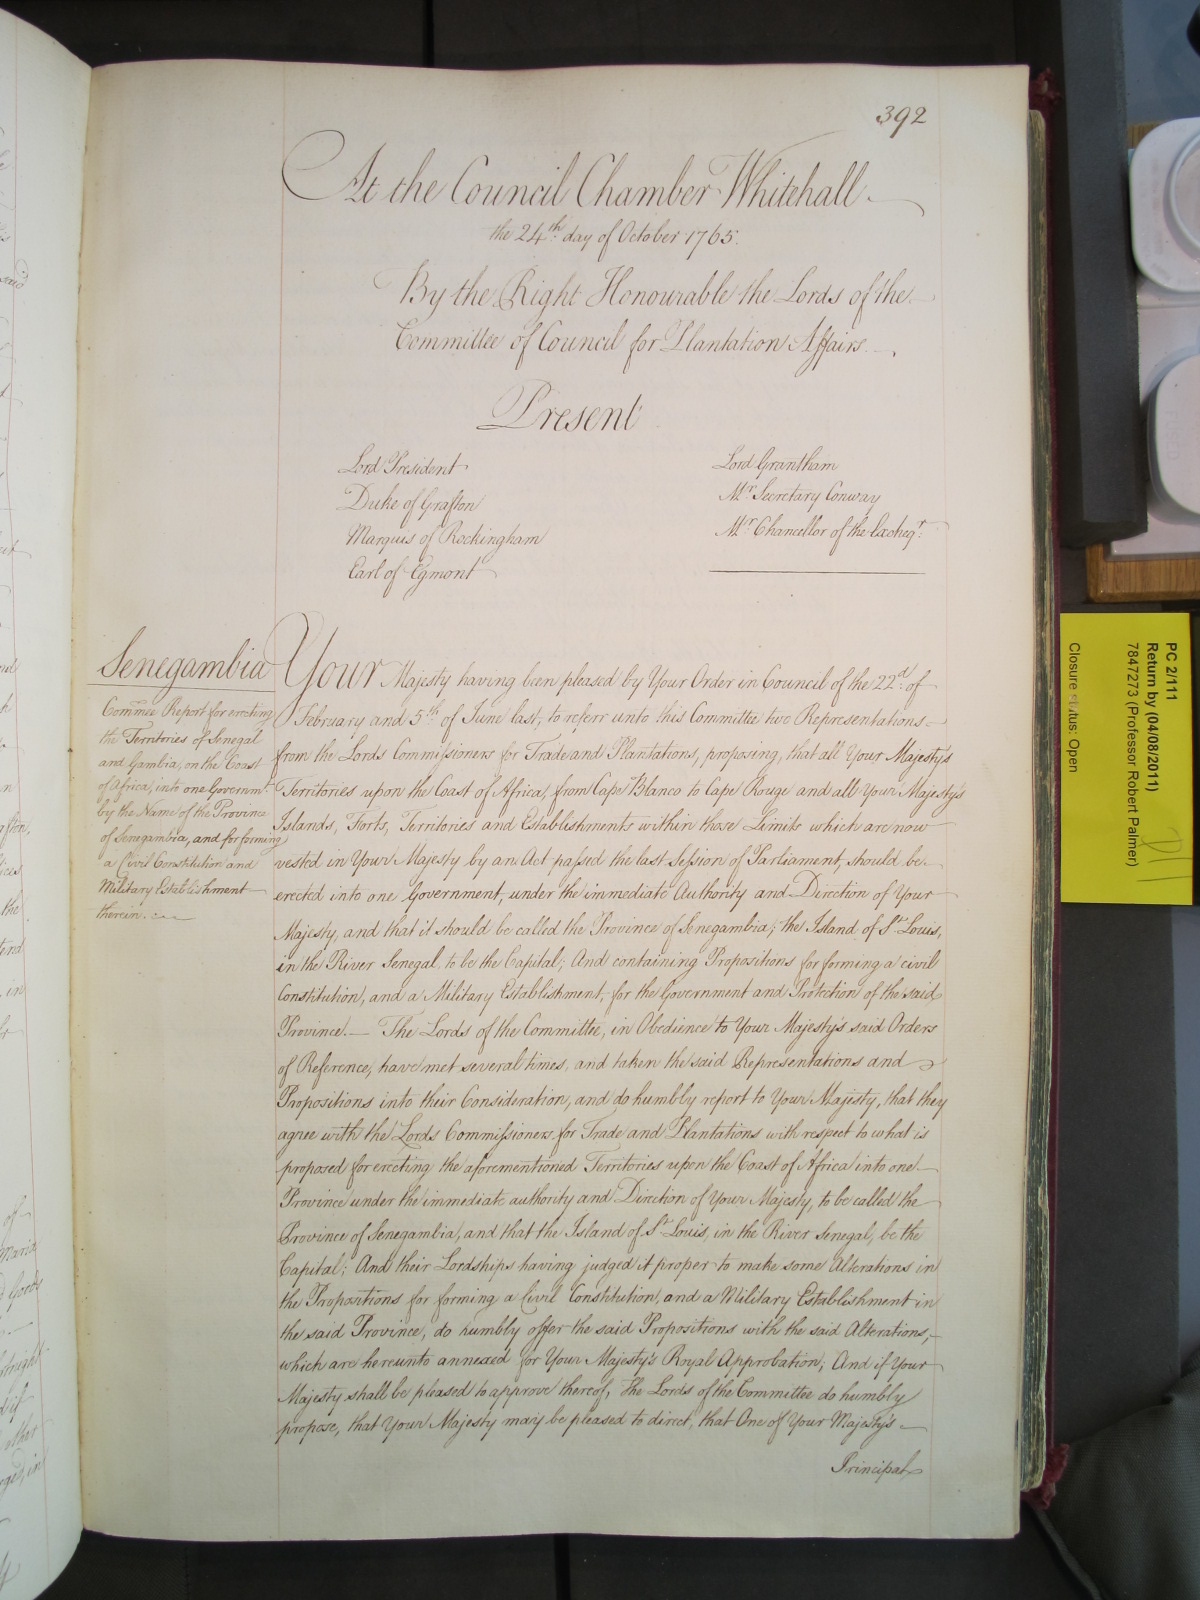 392
At the Council Chamber Whitehall
the 24th day of October 1765.
By the Right Honourable the Lords of the
Committee of Council for Plantation Affairs.
Present
Lord President
Duke of Grafton
Marquis of Rockingham
Earl of Egmont
Lord Grantham
Mr Secretary Conway
Mr Chancellor of the Excheqr.
Senegambia
Commee Report for erecting
the Territories of Senegal
and Gambia, on the Coast
of Africa, into one Governmt.
by the Name of the Province
of Senegambia, and for forming
a Civil Constitution and
Military Establishment
therein.
Your Majesty having been pleased by Your Order in Council of the 22d. of
February and 5th of June last, to referr unto this Committee two Representations
from the Lords Commissioners for Trade and Plantations, proposing, that all Your Majesty's
Territories upon the Coast of Africa, from Cape Blanco to Cape Rouge and all Your Majesty's
Islands, Forts, Territories and Establishments within those Limits which are now
vested in Your Majesty by an Act passed the last Session of Parliament, should be
erected into one Government, under the immediate Authority and Direction of Your
Majesty, and that it should be called the Province of Senegambia; the Island of St Louis,
in the River Senegal, to be the Capital; And containing Propositions for forming a civil
Constitution, and a Military Establishment, for the Government and Protection of the said
Province.— The Lords of the Committee, in Obedience to Your Majesty's said Orders
of Reference, have met several times, and taken the said Representations and
Propositions into their Consideration, and do humbly report to Your Majesty, that they
agree with the Lords Commissioners for Trade and Plantations with respect to what is
proposed for erecting the aforementioned Territories upon the Coast of Africa into one
Province under the immediate authority and Direction of Your Majesty, to be called the
Province of Senegambia, and that the Island of St Louis, in the River Senegal, be the
Capital; And their Lordships having judged it proper to make some Alterations in
the Propositions for forming a Civil Constitution, and a Military Establishment in
the said Province, do humbly offer the said Propositions with the said Alterations,
which are hereunto annexed for Your Majesty's Royal Approbation; And if Your
Majesty shall be pleased to approve thereof, The Lords of the Committee do humbly
propose, that Your Majesty may be pleased to direct, that One of Your Majesty's
Principal
PC 2/111
Return by (04/08/2011)
7847273 (Professor Robert Palmer)
Closure status: Open